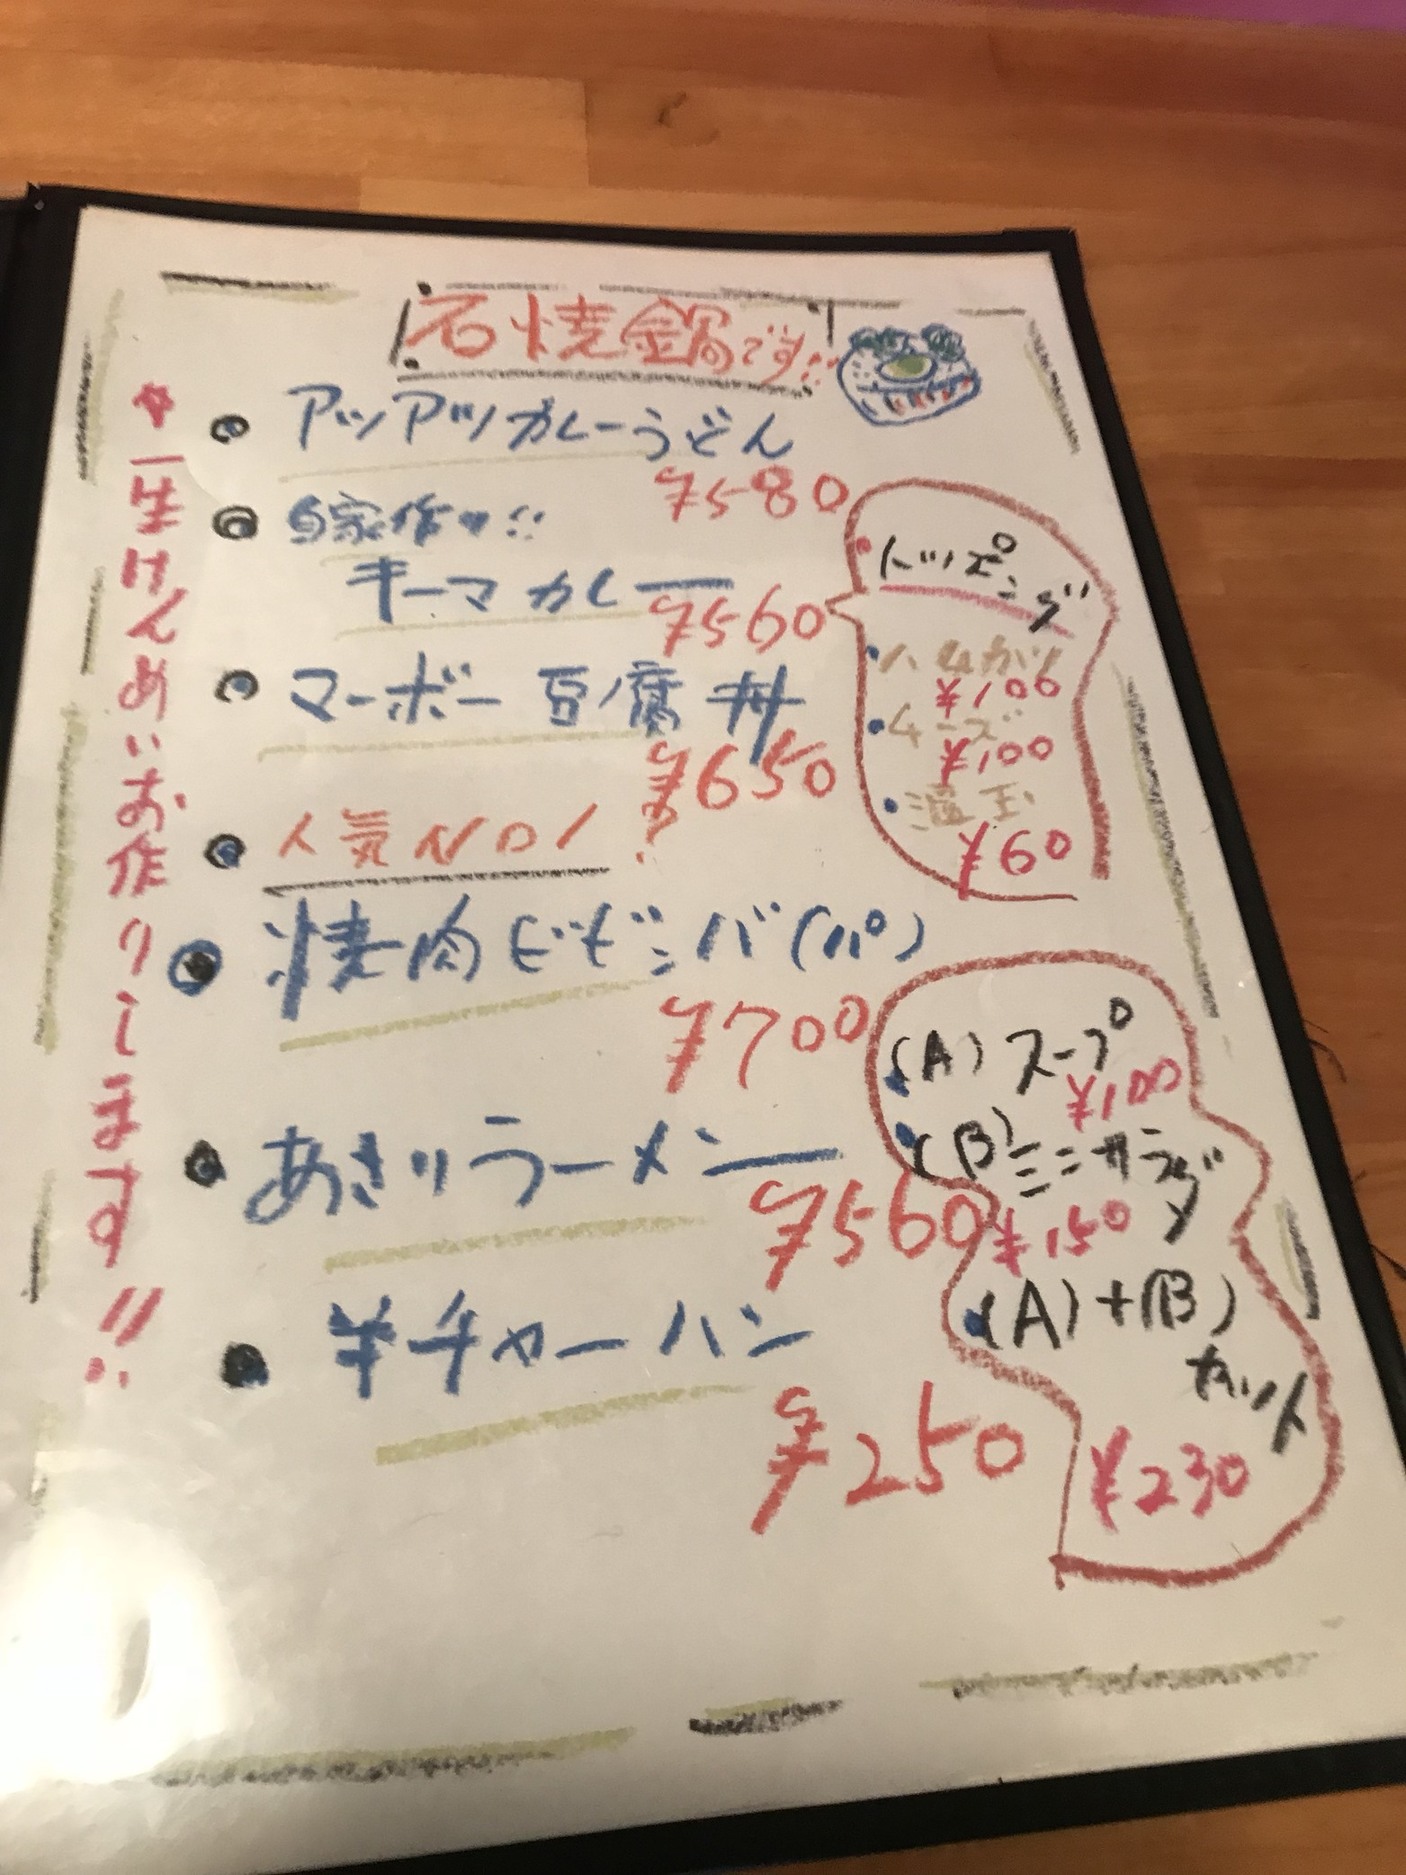 石焼鍋です!!
アツアツカレーうどん
¥580
自家作り!!
キーマカレー
¥560
マーボー豆腐丼
¥650
人気NO1!
焼肉ビビンバ(パ)
¥700
あさりラーメン
¥560
半チャーハン
¥250
トッピング
¥100
チーズ
¥100
温玉
¥60
(A)スープ
¥100
(B)ミニサラダ
¥150
(A)+(B)
セット
¥230
☆一生けんめいお作りします!!